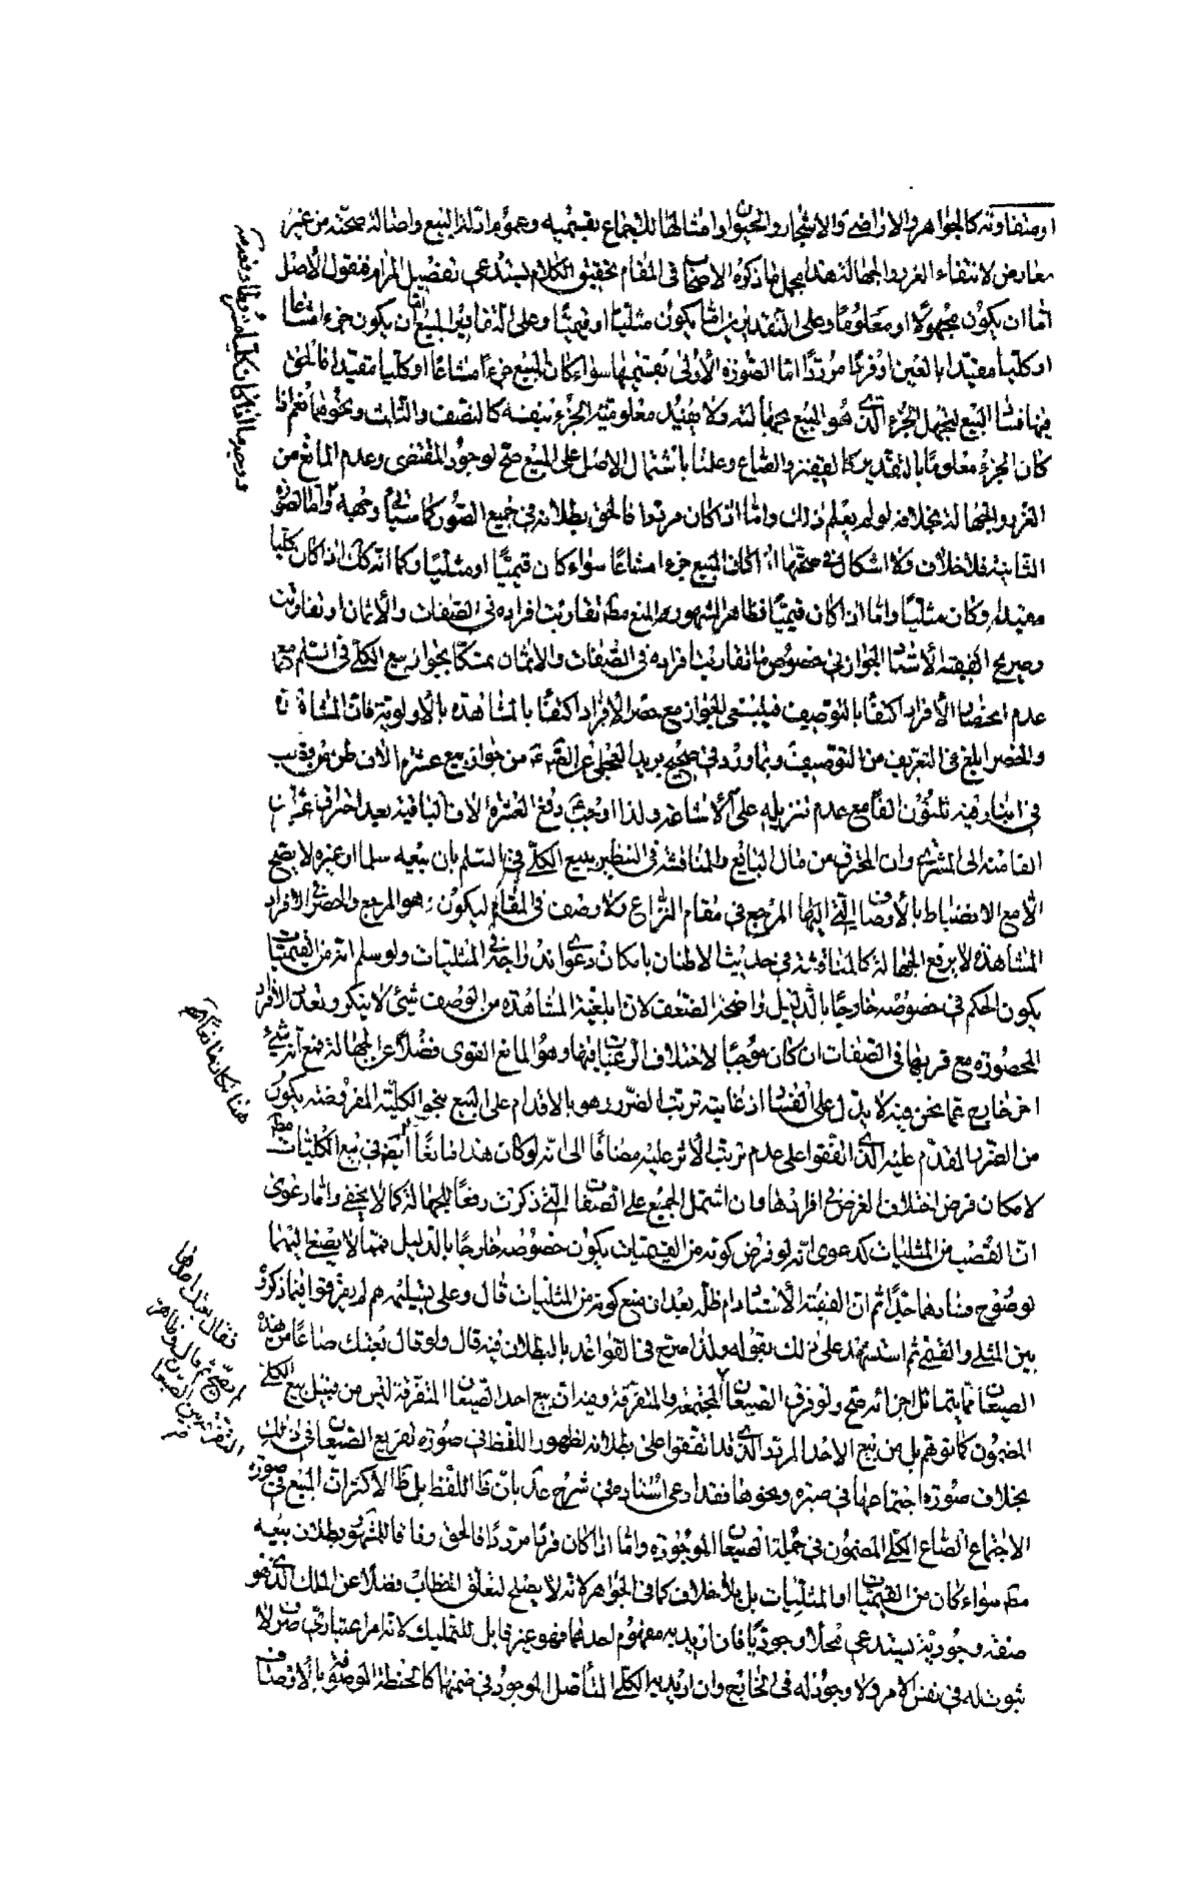 او متفاوتة كالجواهر والاراضي والاشجار والحيوان او امثالها للاجماع بقسميه وعموم ادلة البيع واصالة صحته من غير
معارض لانتفاء الغرر والجهالة هذا مجمل ما ذكره الاصحاب في المقام تحقيق الكلام يستدعي تفصيل المرام فنقول الاصل
اما ان يكون مجهولا او معلوما وعلى التقديرين اما يكون مثليا او قيميا وعلى التقادير المبيع اما ان يكون جزءا مشاعا
او كليا مقيدا بالعين او فردا مرددا اما الصورة الاولى بقسميها سواء كان المبيع جزءا مشاعا او كليا مقيدا فالحق
فيها فساد البيع لجهل الجزء الذي هو المبيع جهالته ولا يفيد معلومية الجزء بنفسه كالنصف والثلث ونحوهما نعم اذا
كان الجزء معلوما بالتقدير كالقفيز والصاع وعلمنا باشتمال الاصل على المبيع صح لوجود المقتضى وعدم المانع من
الغرر والجهالة بخلافه لو لم يعلم ذلك واما اذا كان مرددا فالحق بطلانه في جميع الصور كما سيأتي وجهه واما الصورة
الثانية فلا خلاف ولا اشكال في صحتها اذا كان المبيع جزءا مشاعا سواء كان قيميا او مثليا وكما انه كك اذا كان كليا
مقيدا وكان مثليا واما اذا كان قيميا فظاهر المشهور المنع مط تقاربت افراده في الصفات والاثمان او تفاوتت
وصريح الفقيه الاستاد الجواز في خصوص ما تقاربت افراده في الصفات والاثمان متمسكا بجواز بيع الكلي في السلم مع
عدم انحصار الافراد اكتفاء بالتوصيف فينبغي الجواز مع حصر الافراد اكتفاء بالمشاهدة بالاولوية فان المشاهدة
والحصر ابلغ في التعريف من التوصيف وبما ورد في صحيح بريد العجلي عن الص ع من جواز بيع عشرة الاف طن من قصب
في انبار فيه ثلثون الفا مع عدم تنزيله على الاشاعة ولذا اوجب دفع العشرة الاف الباقية بعد احتراق عشرين
الفا منه الى المشتري وان المحترق من مال البايع والمناقشة في التنظير ببيع الكلي في السلم بان بيعه سلما او غيره لا يصح
الا مع الانضباط بالاوصاف التي اليها المرجع في مقام النزاع ولا وصف في المقام ليكون هو المرجع والحصر الافراد
المشاهدة لا يرفع الجهالة كالمناقشة في حديث الاطنان بامكان دعوى اندراجه في المثليات ولو سلم انه من القيميات
يكون الحكم في خصوصه خارجا بالدليل واضحة الضعف لان ابلغية المشاهدة من الوصف شيئ لا ينكر وتعدد الافراد
المحصورة مع قربها في الصفات ان كان موجبا لاختلاف الرغبات فيها وهو المانع القوى فضلا عن الجهالة فمع انه شيئ
اخر خارج عما نحن فيه لا يدل على الفساد اذ غايته ترتب الضرر وهو بالاقدام على البيع بنحو الكلية المفروضة يكون
من الضرر المقدم عليه الذي اتفقوا على عدم ترتب الاثر عليه مضافا الى انه لو كان هذا مانعا ايضا في بيع الكليات مط
لامكان فرض اختلاف الغرض في افرادها وان اشتمل الجميع على الصفات التي ذكرت رفعا للجهالة كما لا يخفى واما دعوى
ان القصب من المثليات كدعوى انه لو فرض كونه من القيميات يكون خصوصه خارجا بالدليل فمما لا يصغى اليهما
لوضوح فسادهما جدا ثم ان الفقيه الاستاد دام ظله بعد ان منع كونه من المثليات قال وعلى تسليمه هم لم يفرقوا فيما ذكروه
بين المثلي والقيمي ثم استشهد على ذلك بقوله ولذا صرح في القواعد بالبطلان فيه قال ولو قال بعتك صاعا من هذه
الصيعان مما يتماثل اجزائه صح ولو فرق الصيعان المجتمعة والمتفرقة وفيه ان بيع احد الصيعان المتفرقة ليس من قبيل بيع الكلي
المضمون كما توهم بل من بيع الاحد المردد الذي قد اتفقوا على بطلانه لظهور اللفظ في صورة تفريع الصيعان في ذلك
بخلاف صورة اجتماعها في صبرة ونحوها فقد ادعى استاده في شرح عد بان ظ اللفظ بل ظ الاكثر ان المبيع في صورة
الاجتماع الصاع الكلي المضمون في جملة الصيعان الموجودة واما اذا كان فردا مرددا فالحق وفاقا للمشهور بطلان بيعه
مط سواء كان من القيميات او المثليات بل بلا خلاف كما في الجواهر لانه لا يصلح لتعلق الخطاب فضلا عن الملك الذي هو
صفة وجودية يستدعي محلا وجوديا فان اريد به مفهوم احدهما فهو غير قابل للتمليك لانه امر اعتباري صرف لا
ثبوت له في نفس الامر ولا وجود له في الخارج وان اريد به الكلي المتأصل الموجود في ضمنها كالحنطة الموصوفة بالاوصاف
هذا لكان مانعا
فقال بعدل احدها
لم يصح ثم قال وظاهره
التفرقة بين الصيعان